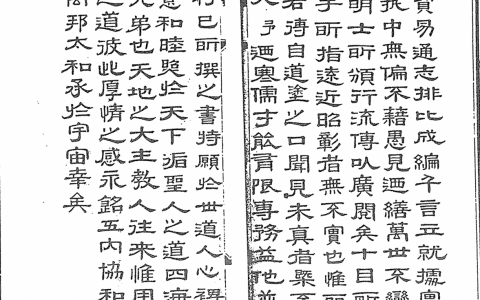 貿易通志排比成編千言立就據實
中無偏不藉愚見迺繕萬世不變
明士所頒行流傳以廣閱矣十目所
手所指遠近昭彰者無不實也惟所
若得自道塗之口聞見未真者槩不
人予迺寒儒才能有限專務益他並
行已所撰之書特願於世道人心裨
意和睦與於天下循聖人之道四海
兄弟也天地之大主教人往來惟用
之道彼此厚情之感永銘五內協和
萬邦太和承於宇宙幸矣